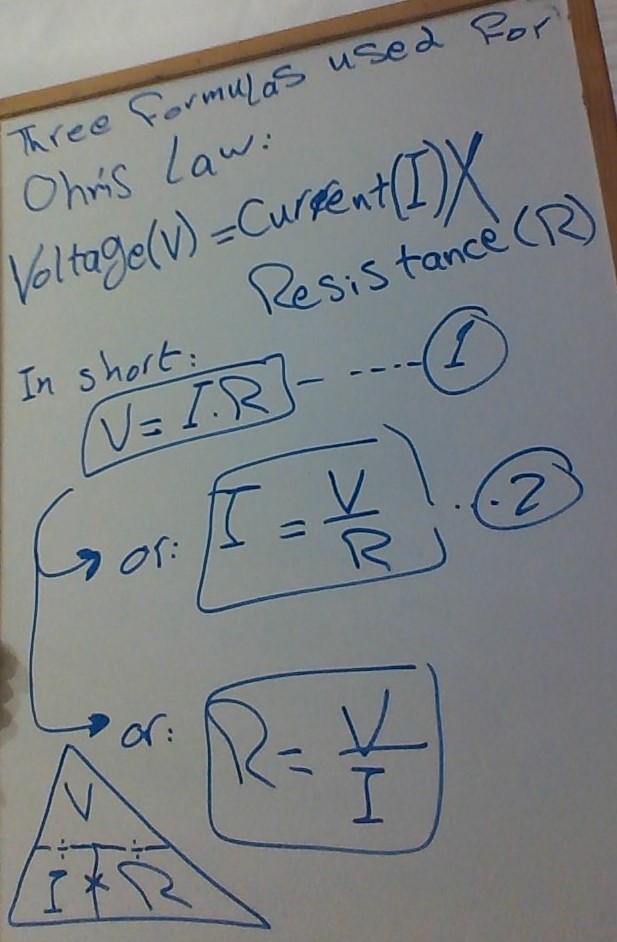 Three Formulas used For
Ohm's Law:
Voltage(V) = Current(I) X
Resistance(R)
In short:
V = I.R - ---- 1
or: I = V/R ... 2
or: R = V/I
V
÷ ÷
I * R